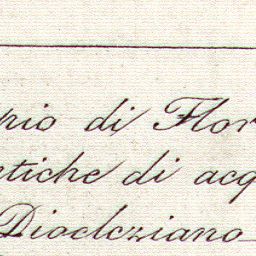 pio di Flor
ntiche di acq
Diocleziano